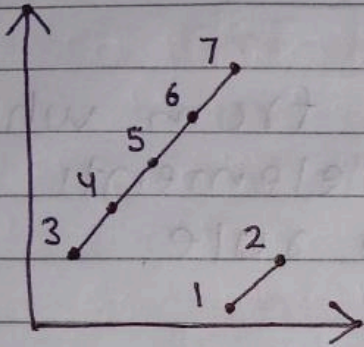 7
6
5
4
3
2
1